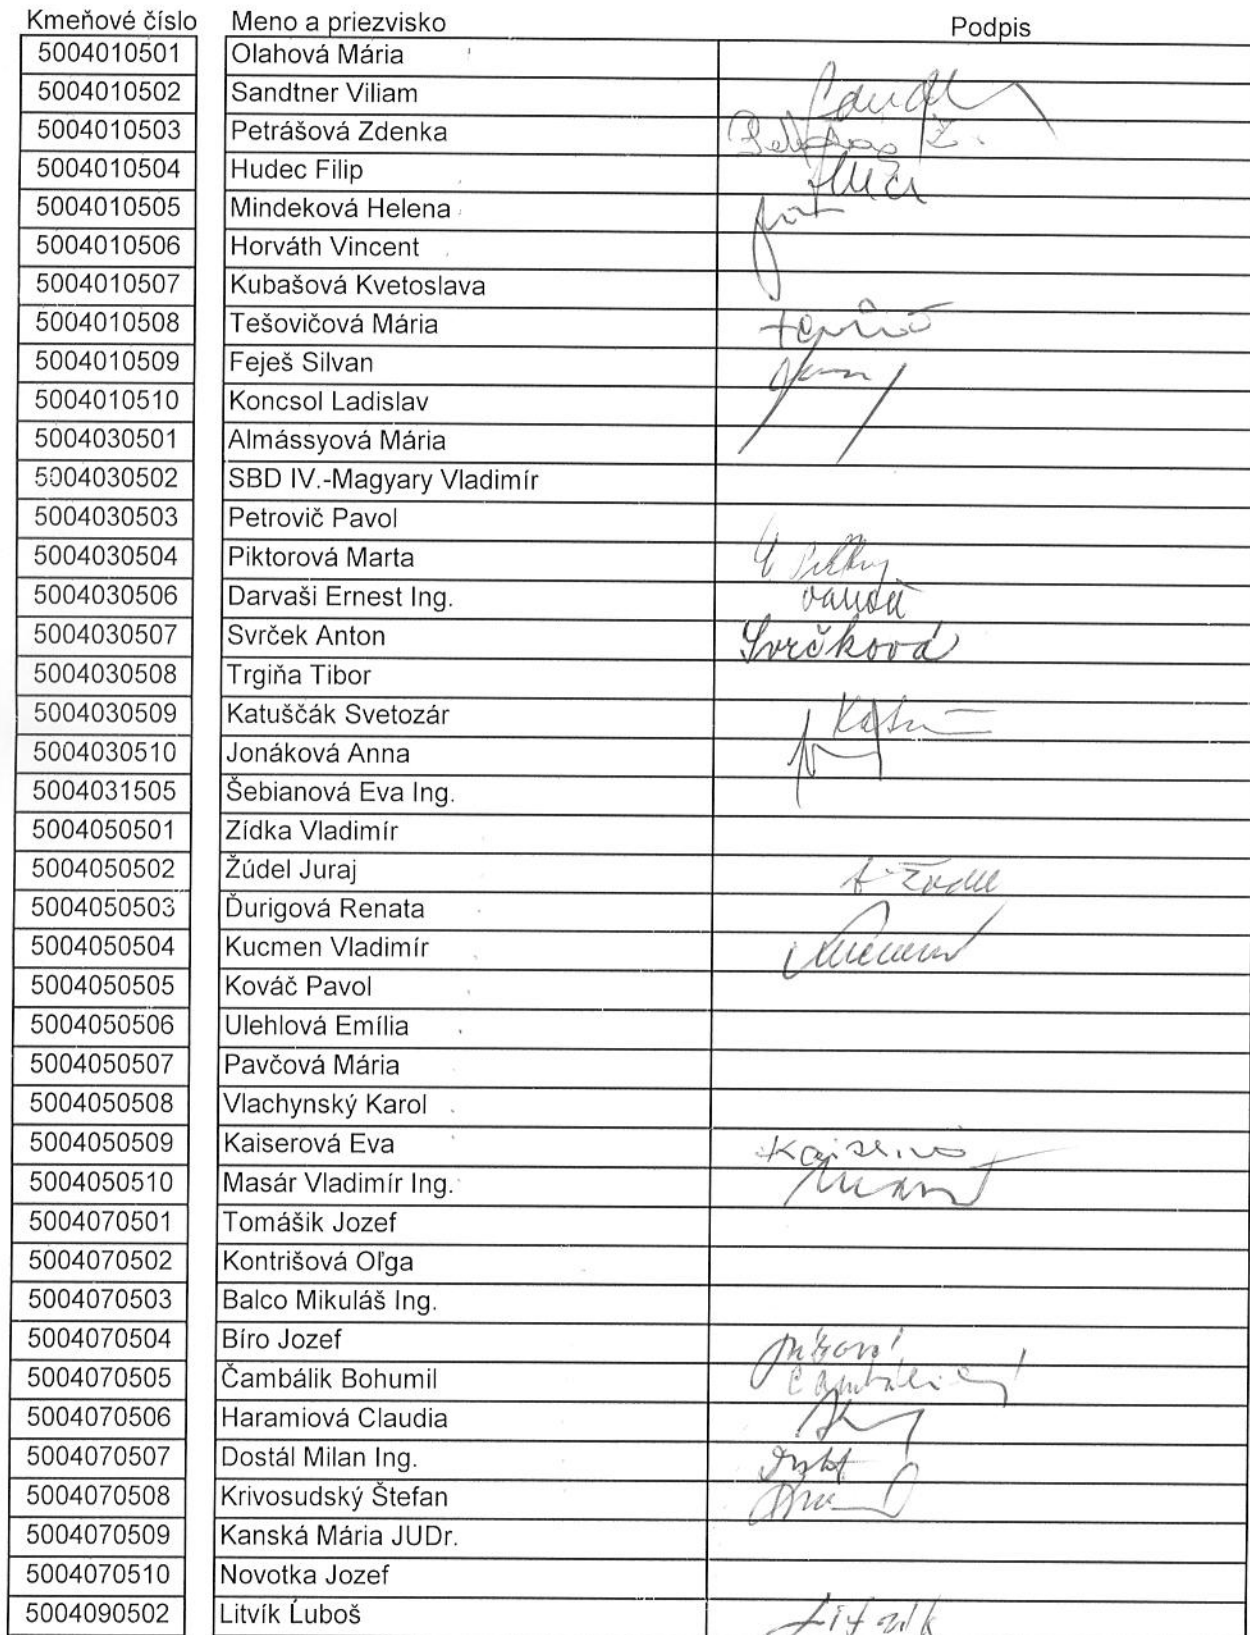 Kmeňové číslo Meno a priezvisko Podpis
5004010501 Olahová Mária
5004010502 Sandtner Viliam
5004010503 Petrášová Zdenka
5004010504 Hudec Filip
5004010505 Mindeková Helena
5004010506 Horváth Vincent
5004010507 Kubašová Kvetoslava
5004010508 Tešovičová Mária
5004010509 Feješ Silvan
5004010510 Koncsol Ladislav
5004030501 Almássyová Mária
5004030502 SBD IV.-Magyary Vladimír
5004030503 Petrovič Pavol
5004030504 Piktorová Marta
5004030506 Darvaši Ernest Ing.
5004030507 Svrček Anton Svrčková
5004030508 Trgiňa Tibor
5004030509 Katuščák Svetozár
5004030510 Jonáková Anna
5004031505 Šebianová Eva Ing.
5004050501 Zídka Vladimír
5004050502 Žúdel Juraj
5004050503 Ďurigová Renata
5004050504 Kucmen Vladimír
5004050505 Kováč Pavol
5004050506 Ulehlová Emília
5004050507 Pavčová Mária
5004050508 Vlachynský Karol
5004050509 Kaiserová Eva
5004050510 Masár Vladimír Ing.
5004070501 Tomášik Jozef
5004070502 Kontrišová Oľga
5004070503 Balco Mikuláš Ing.
5004070504 Bíro Jozef
5004070505 Čambálik Bohumil
5004070506 Haramiová Claudia
5004070507 Dostál Milan Ing.
5004070508 Krivosudský Štefan
5004070509 Kanská Mária JUDr.
5004070510 Novotka Jozef
5004090502 Litvík Ĺuboš Litvík